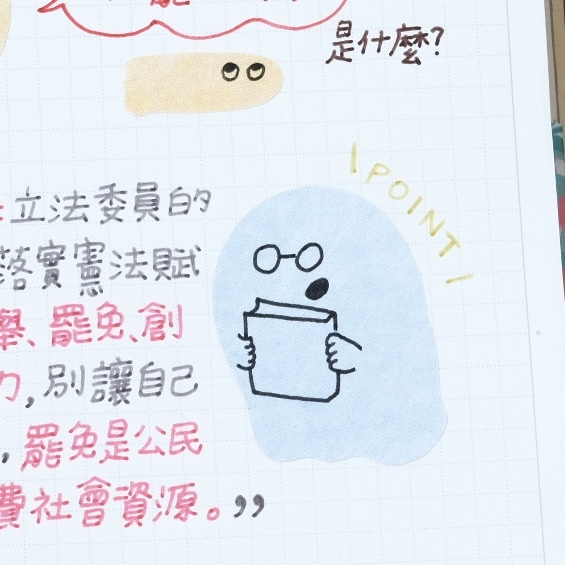 是什麼?
POINT
立法委員的
落實憲法賦
舉、罷免、創
力,別讓自己
,罷免是公民
費社會資源。”